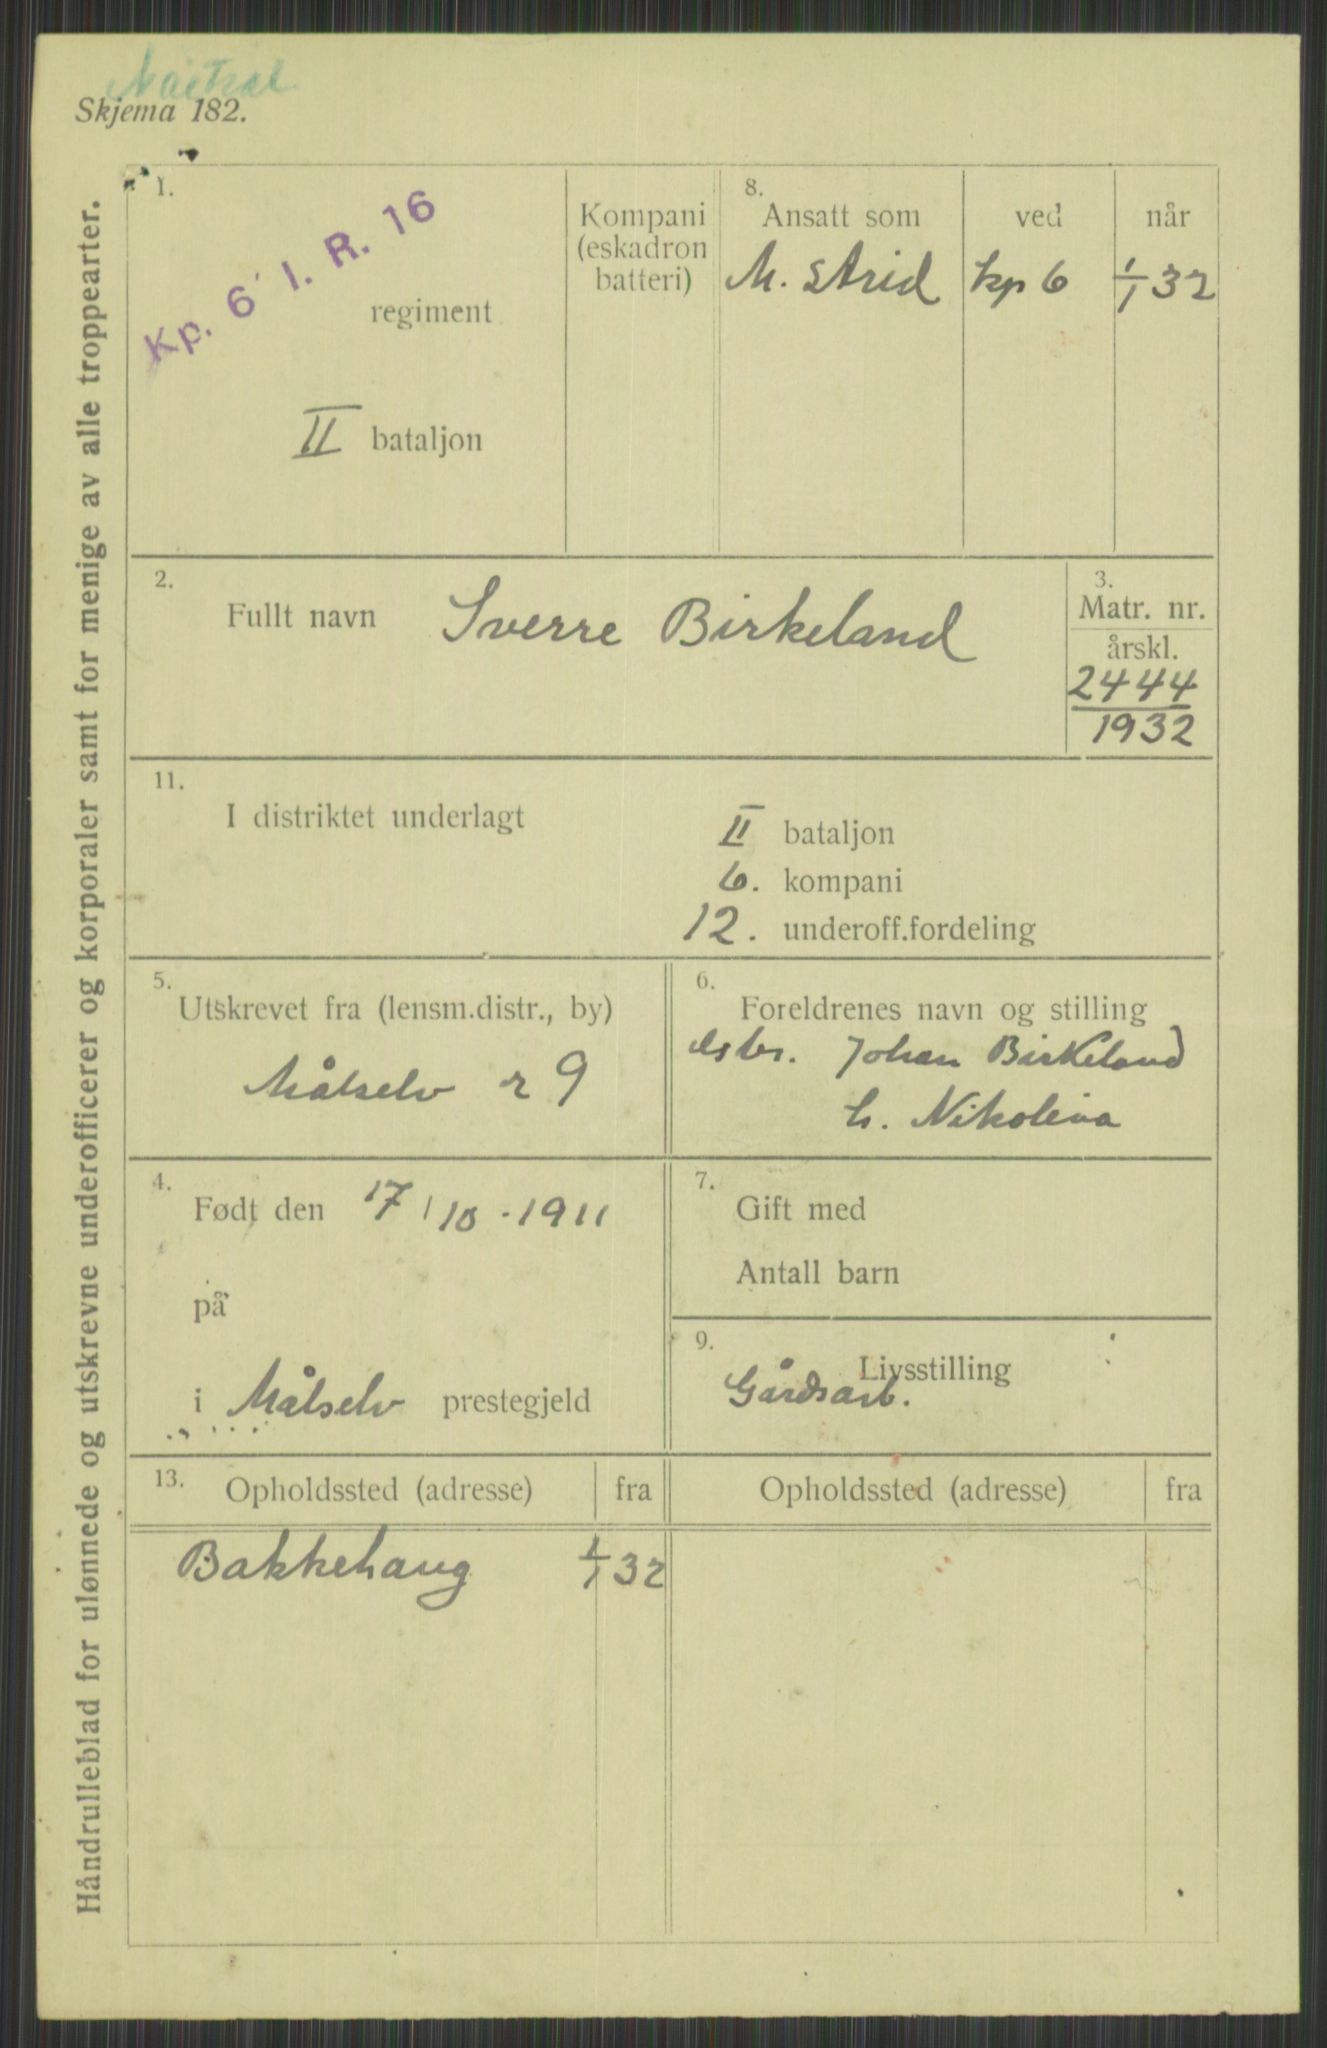 Skjema 182.
Håndrulleblad for ulønnede og utskrevne underofficerer og korporaler samt for menige av alle troppearter.
1.
Kp. 6 I. R. 16
regiment
II bataljon
Kompani
(eskadron
batteri)
8.
Ansatt som
ved
når
M. strid
kp 6
1/1 32
2.
Fullt navn Sverre Birkeland
3.
Matr. nr.
årskl.
2444
1932
11.
I distriktet underlagt
II bataljon
6. kompani
12. underoff.fordeling
5.
Utskrevet fra (lensm.distr., by)
Målselv r 9
6.
Foreldrenes navn og stilling
Johan Birkeland
h. Nikolina
4.
Født den 17/10 - 1911
på
i Målselv prestegjeld
7.
Gift med
Antall barn
9.
Livsstilling
Gårdsarb.
13.
Opholdssted (adresse)
fra
Opholdssted (adresse)
fra
Bakkehaug 1/1 32